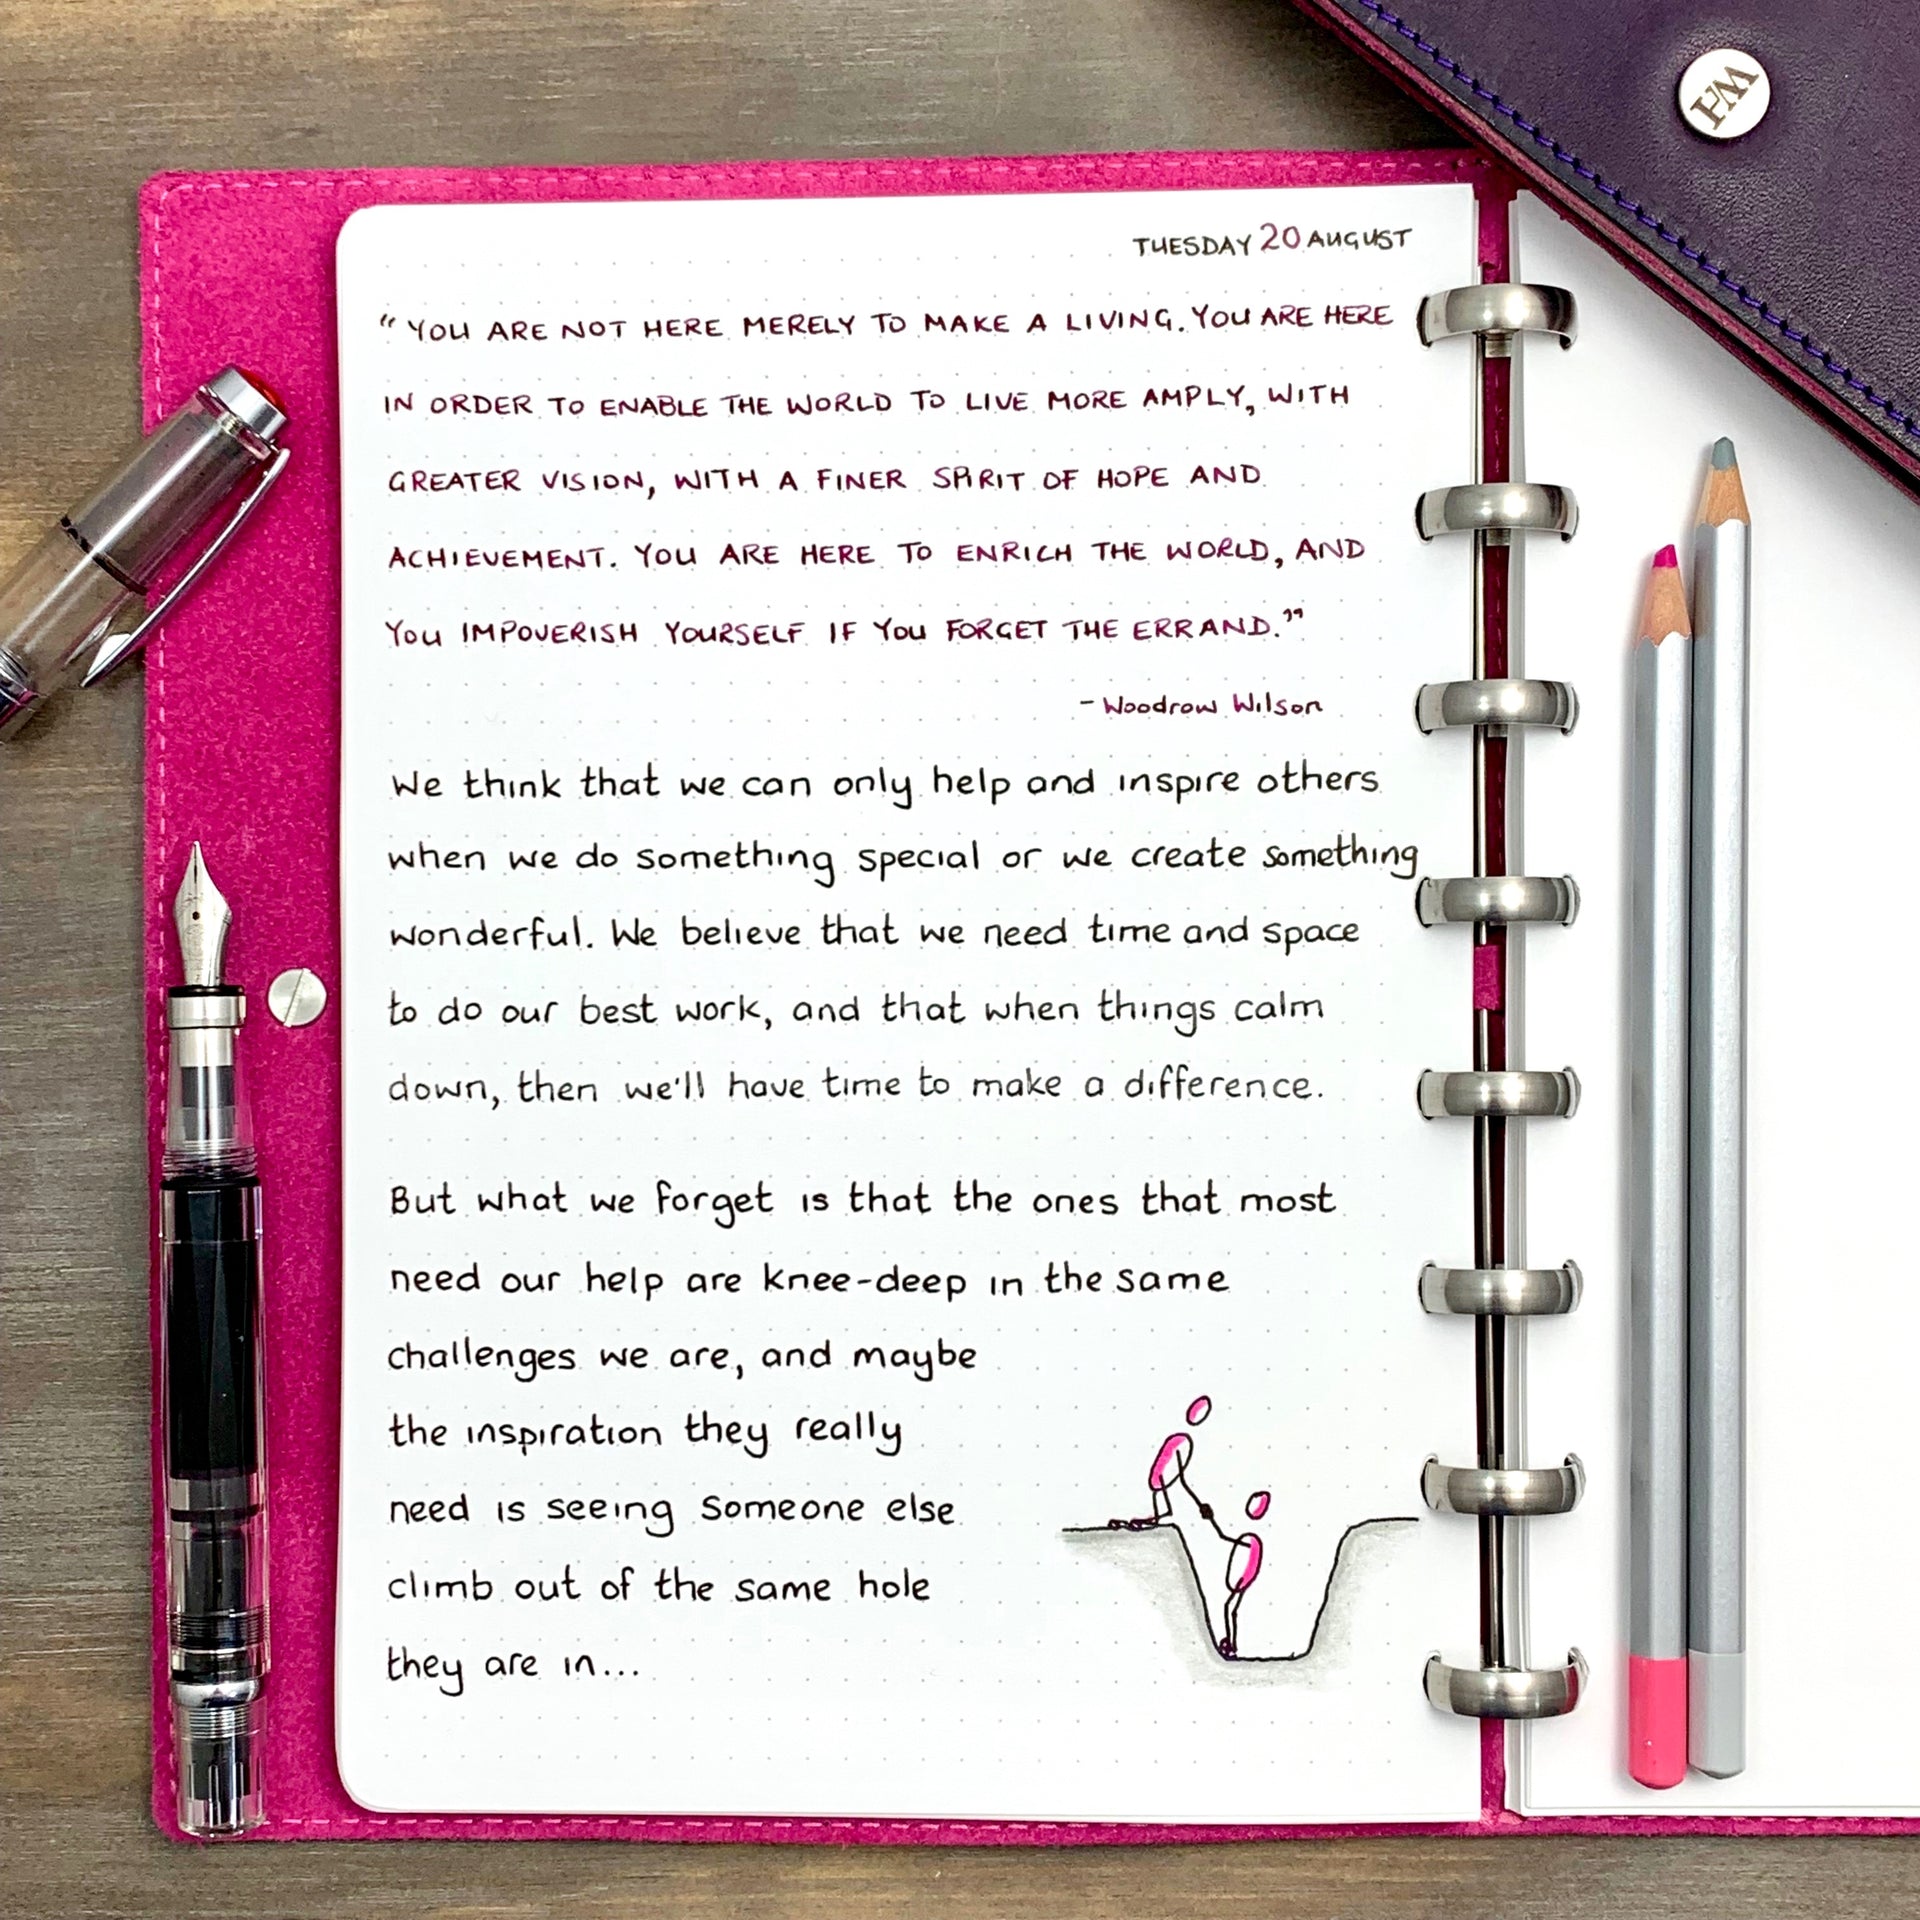 WH
TUESDAY 20 AUGUST
"YOU ARE NOT HERE MERELY TO MAKE A LIVING. YOU ARE HERE
IN ORDER TO ENABLE THE WORLD TO LIVE MORE AMPLY, WITH
GREATER VISION, WITH A FINER SPIRIT OF HOPE AND
ACHIEVEMENT. YOU ARE HERE TO ENRICH THE WORLD, AND
YOU IMPOVERISH YOURSELF IF YOU FORGET THE ERRAND."
- Woodrow Wilson
We think that we can only help and inspire others
when we do something special or we create something
wonderful. We believe that we need time and space
to do our best work, and that when things calm
down, then we'll have time to make a difference.
But what we forget is that the ones that most
need our help are knee-deep in the same
challenges we are, and maybe
the inspiration they really
need is seeing someone else
climb out of the same hole
they are in...